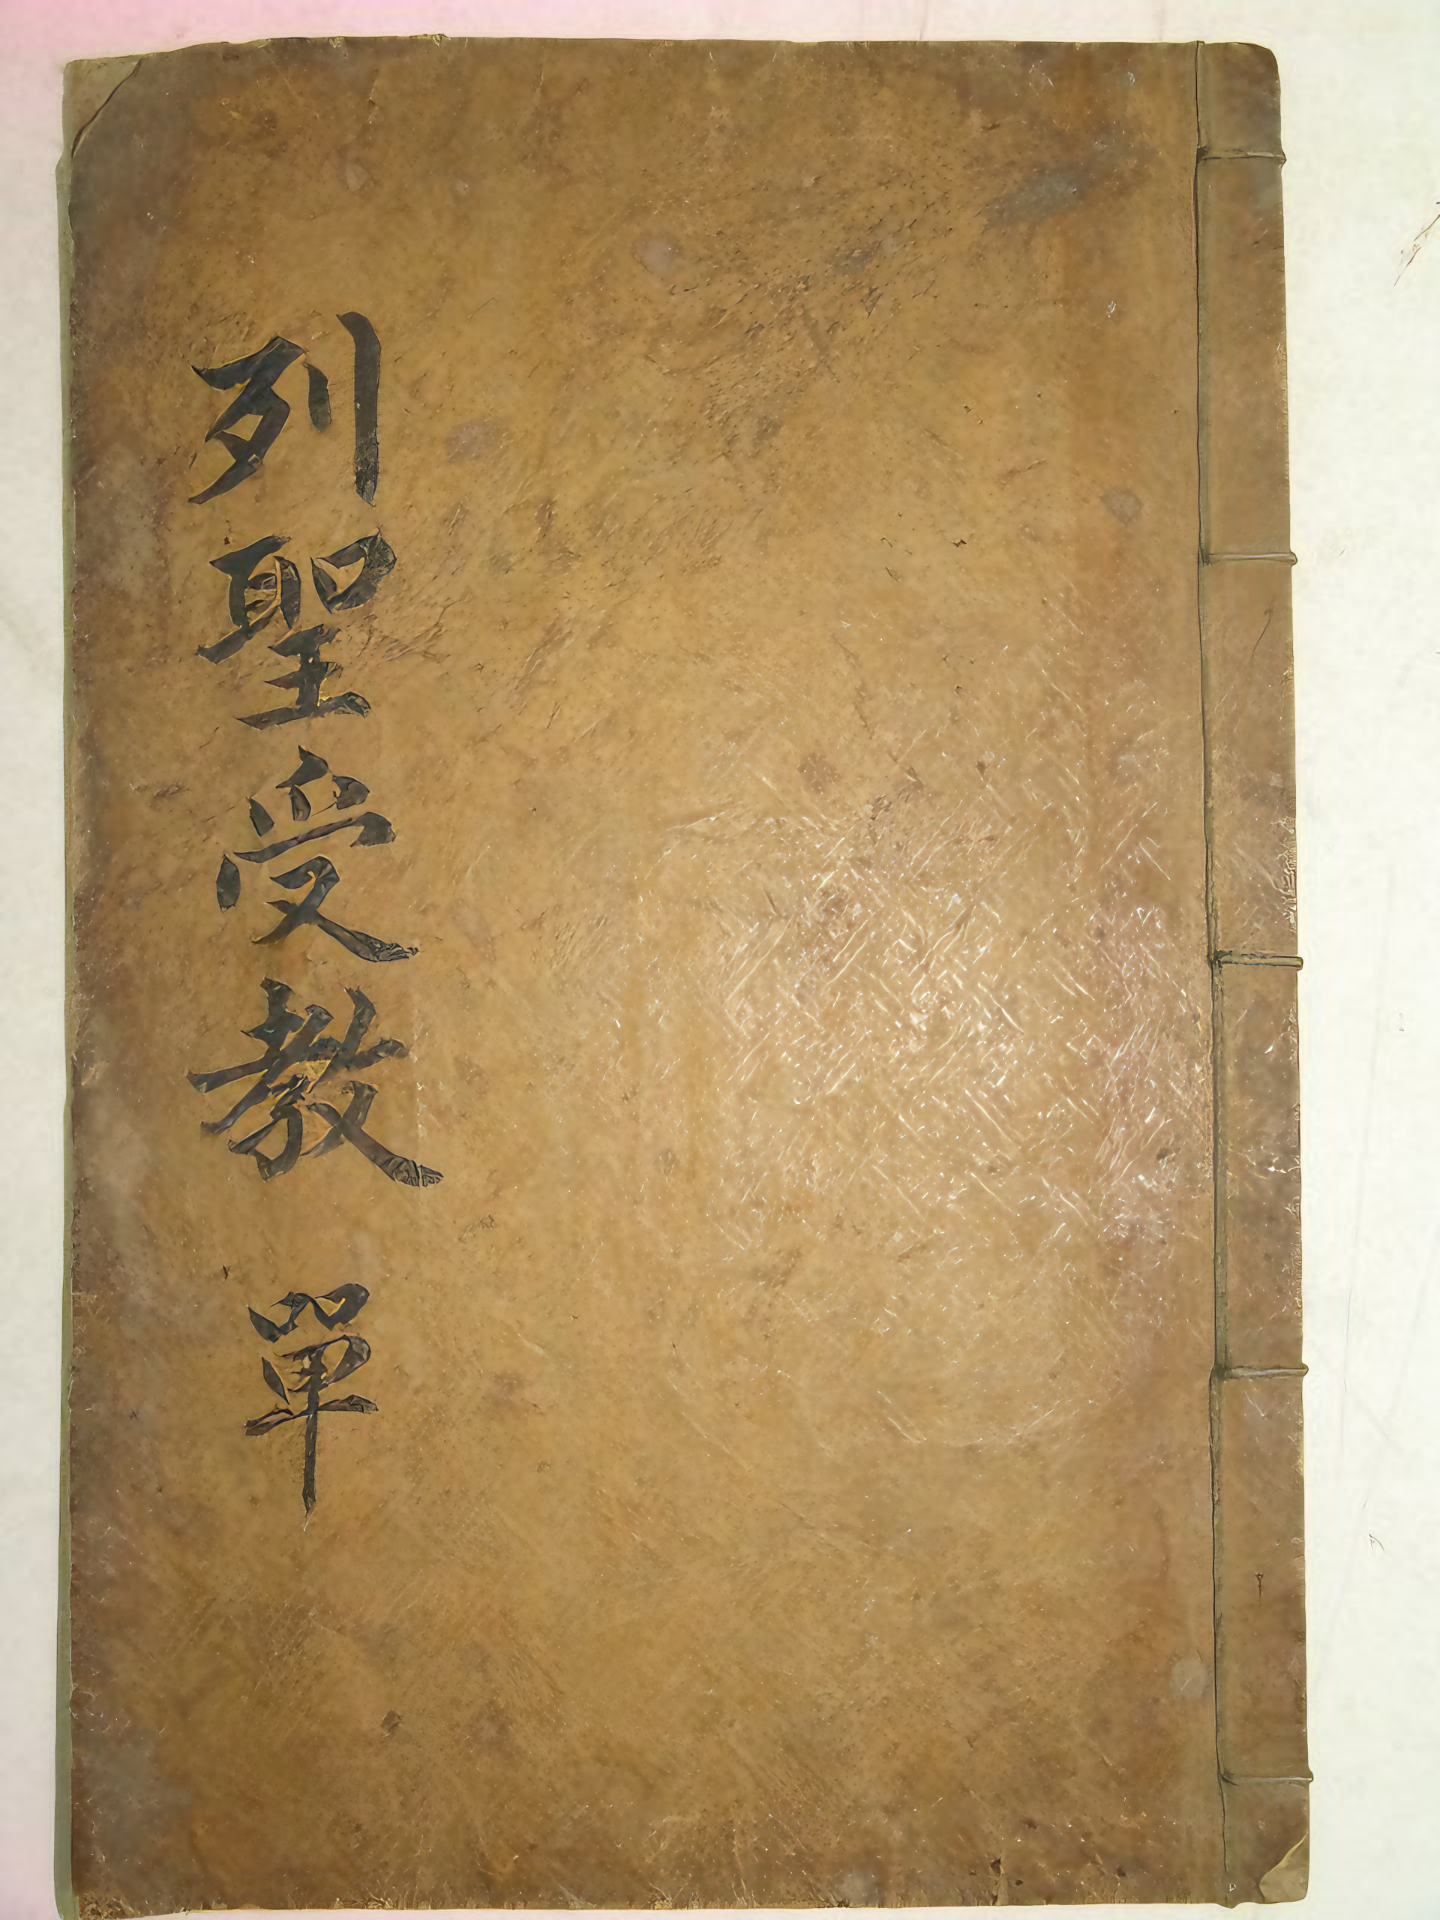 列聖受教 單